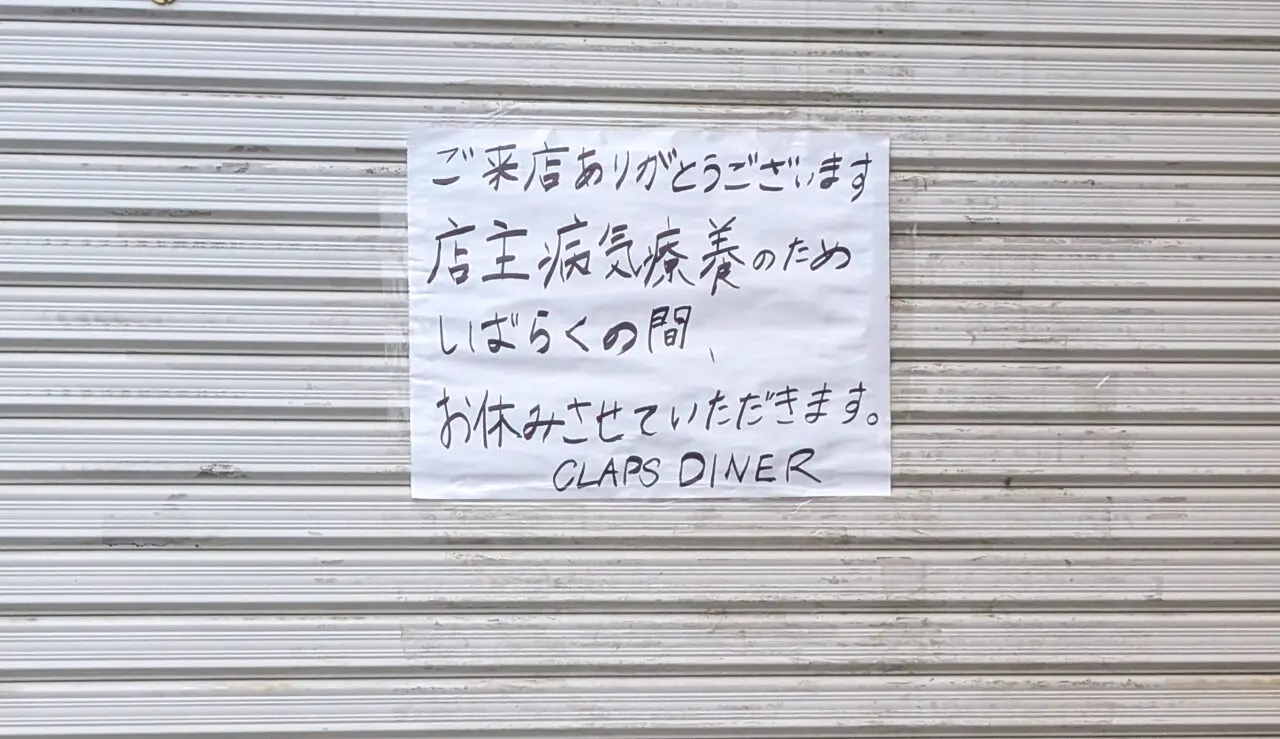 ご来店ありがとうございます
店主病気療養のため
しばらくの間、
お休みさせていただきます。
CLAPS DINER